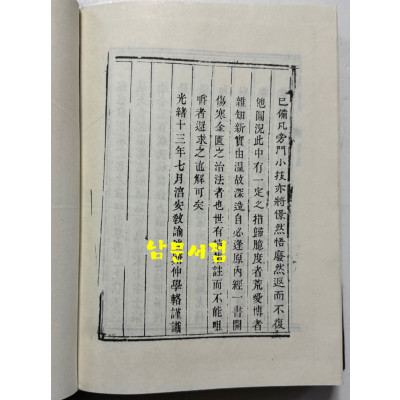 已備凡旁門小技亦將憬然悟廢然返而不復
他圖況此中有一定之指歸臆度者荒愛博者
雜知新實由温故深造自必逢原內經一書開
傷寒金匱之治法者也世有註而不能咀
嚼者遐求之直解可矣
光緒十三年七月淯安教諭仲學輅謹識
남문서점